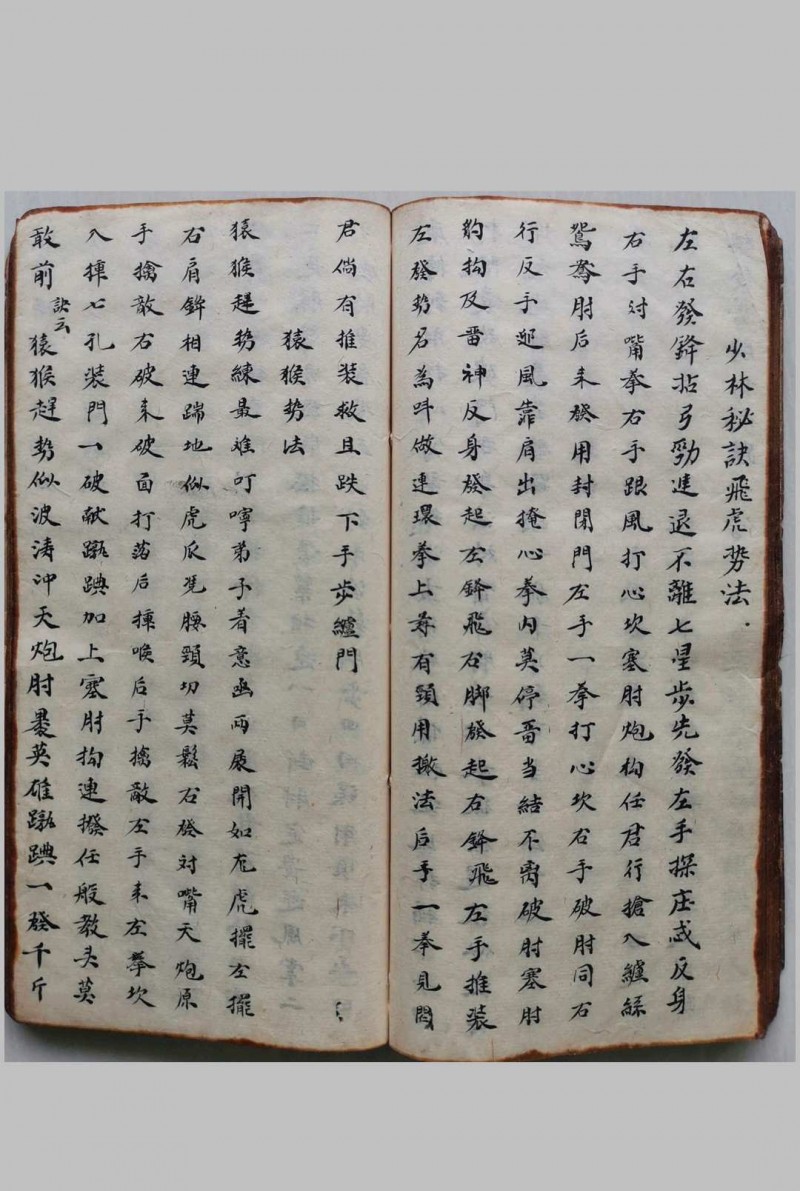 少林秘訣飛虎势法.
左右發鋒拈弓勁進退不離七星步先發左手探庄或反身
右手对嘴拳右手跟風打心坎塞肘炮构任君行搶入纏絲
鴛鴦肘后来發用封閉門左手一拳打心坎右手破肘同右
行反手迎風靠肩出掩心拳内莫停畨当結不离破肘塞肘
豹构及畨神反身發起左鋒飛右脚發起右鋒飛左手推装
左發势名為叫做連環拳上并有頭用撳法后手一拳見悶
君倘有推装救且跌下手步纏門
猿猴势法
猿猴趕势練最难叮嚀弟子着意幽两展開如龙虎擺左擺
右肩鋒相連踹地似虎瓜凭腰頸切莫鬆右發对嘴天炮原
手擒敵右破来破面打荡后揰喉后手擒敵左手来左拳坎
入揰七孔装門一破献蹾踭加上塞肘构連撥任般教头莫
敢前 訣云 猿猴趕势似波涛冲天炮肘暴英雄蹾踭一發千斤